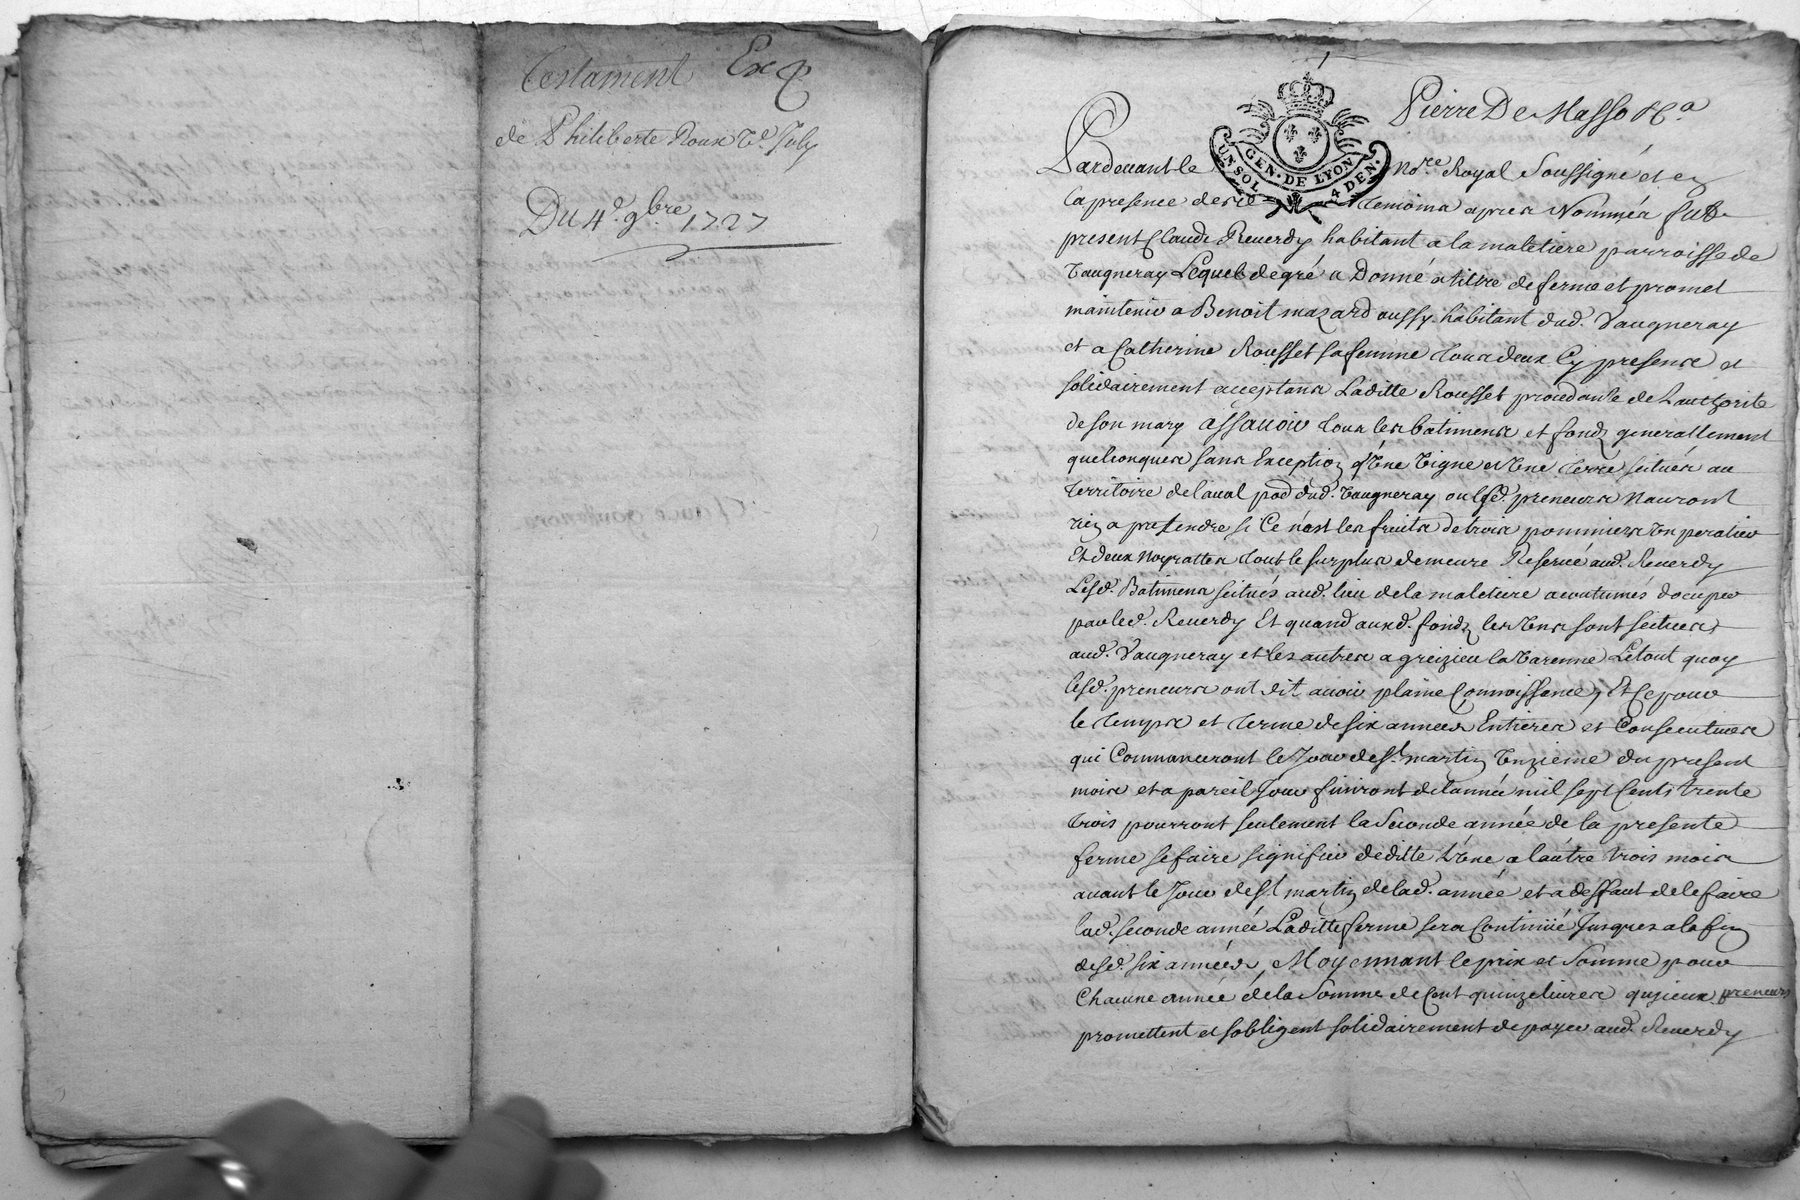 Testament Ex
de Philiberte Roux Ve. July
Du 4e. 9bre 1727
Pierre De Masso &a
UN SOL GEN. DE LYON 4 DEN.
Pardeuant le Nore. Royal Soussigné et en
la presence des temoins apres Nommés fut
present Claude Reuerdy habitant a la maletiere parroisse de
Vaugneray Lequel de gré a Donné a titre de ferme et promet
maintenir a Benoit mazard aussy habitant dud. Vaugneray
et a Catherine Rousset sa femme tous deux Cy presens et
solidairement acceptans Laditte Rousset procedante de Lauthorite
de son mary assauoir tous les batimens et fonds generallement
quelconques sans Exception q'Vne Vigne et Vne terre scitués au
territoire de laual dud. Vaugneray ou lesd. preneurs Nauront
rien a pretendre si Ce n'est les fruits de trois pommiers Vn
Et deux tout le surplus demeure Reserué aud. Reuerdy
Lesd. Batimens scitués aud. lieu de la maletiere acoutumés docuper
par led. Reuerdy Et quand auxd. fonds les Vns sont scitues
aud. Vaugneray et les autres a greizieu la Varenne Le tout quoy
lesd. preneurs ont dit auoir plaine Connoissance, Et Ce pour
le temps et terme de six années Entieres et Consecutiues
qui Commanceront le Jour de St. martin Vnzieme du present
mois et a pareil Jour finiront de lannée mil sept Cents trente
trois pourront seulement la Seconde année de la presente
ferme se faire signifier deditte l'Vne a lautre trois mois
auant le Jour de St. martin de lad. année et a deffaut de le faire
lad. seconde année Laditte ferme sera Continüé Jusques a la fin
desd. six années, Moyennant le prix et Somme pour
Chacune année de la Somme de Cent quinze liures que iceux preneurs
promettent et sobligent solidairement de payer aud. Reuerdy